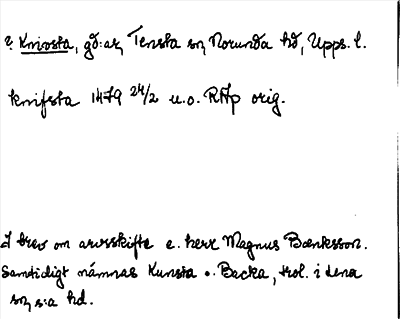 ? Knivsta, gd:ar, Tensta sn, Norunda hd, Upps. l.
Knifsta 1479 24/2 u.o. RAp orig.
I brev om arvsskifte e. herr Magnus Bænktsson.
Samtidigt nämnas Kunsta o. Backa, trol. i dena
sn, s:a hd.